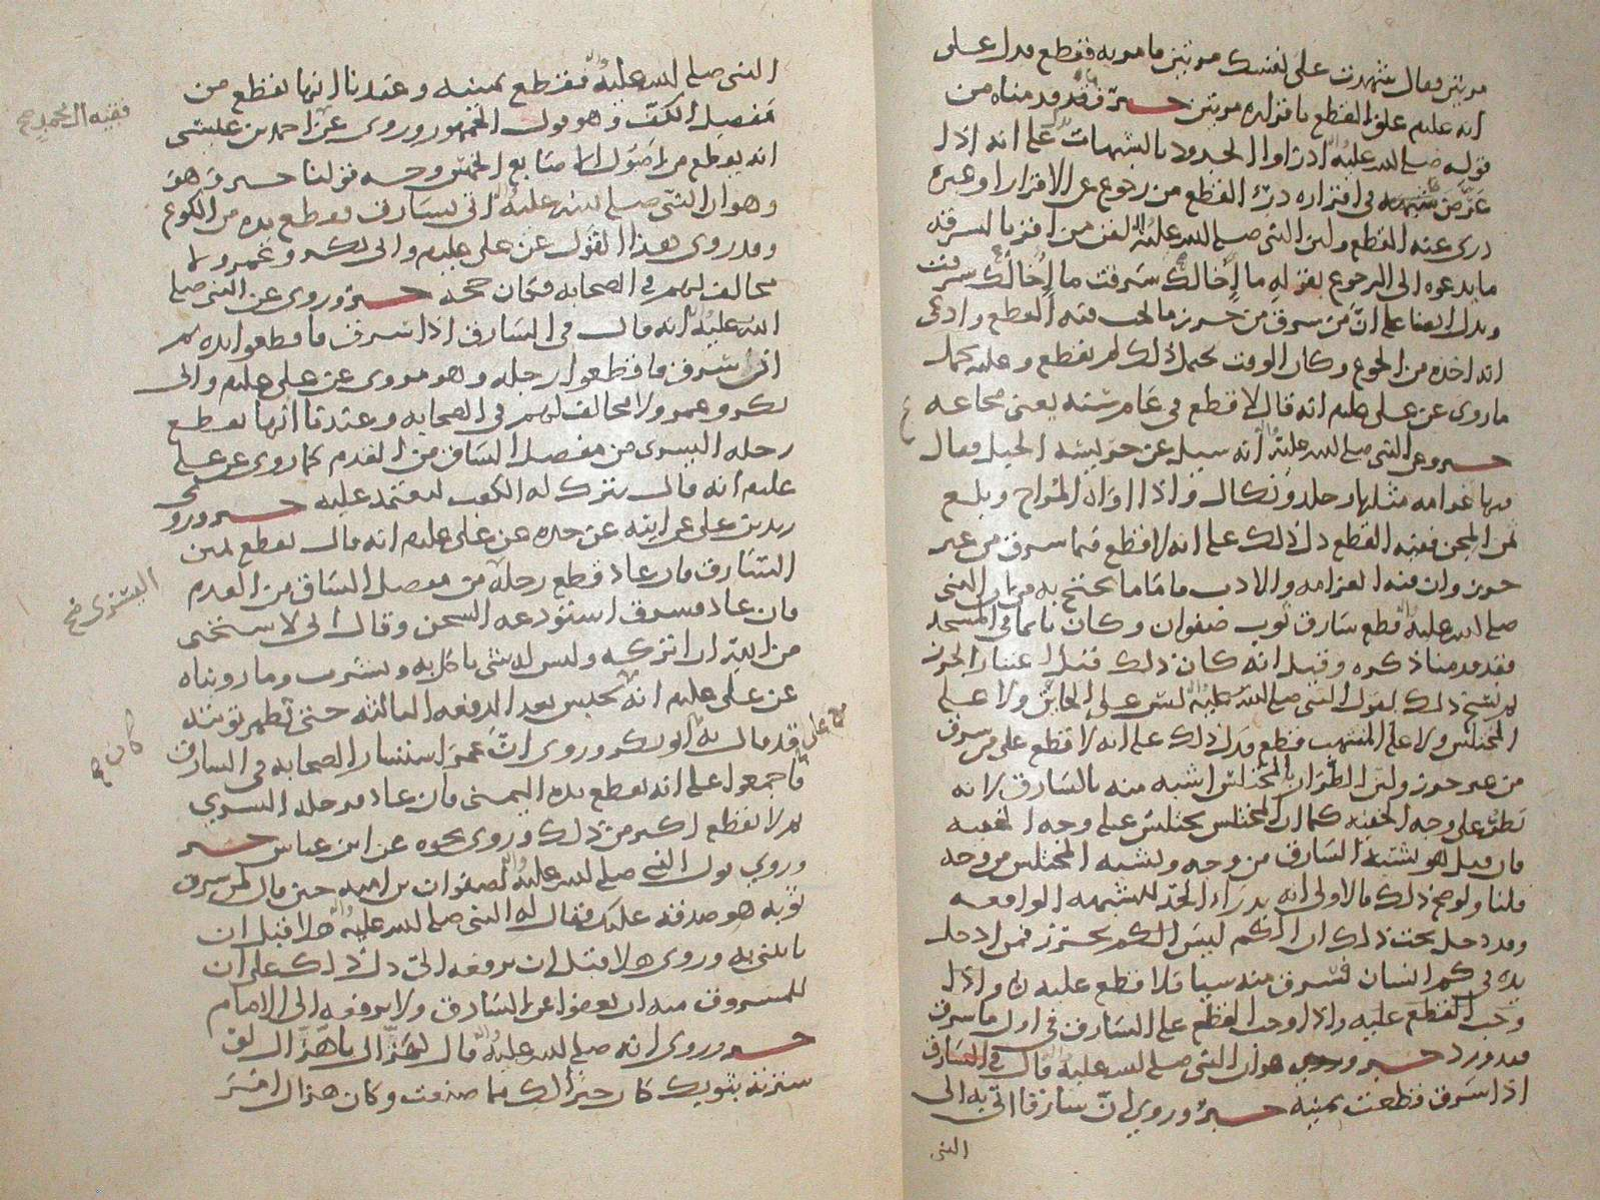 مرتين فقال شهدت على نفسك مرتين فامر به فقطع فدل على
انه عليم علق القطع باقراره مرتين خبر فقد قدمناه من
قوله صلى الله عليه ادرأوا الحدود بالشبهات على انه اذا
عرض شبهه في اقراره درئ القطع من رجوع عن الاقرار او غيره
درئ عنه القطع ولان النبي صلى الله عليه لقن من اقر بالسرقه
ما يدعوه الى الرجوع بقوله ما إخالك سرقت ما إخالك سرقت
ويدل ايضا على ان من سرق من حرز ما يجب فيه القطع وادعى
انه اخذه من الجوع وكان الوقت يحتمل ذلك لم يقطع وعليه يحمل
ما روى عن على عليم انه قال لا قطع في عام سنه يعنى مجاعه
خبر وعن النبي صلى الله عليه انه سيل عن حريسه الجبل فقال
فيها غرامه مثلها وجلد ونكال فاذا اواه المراح وبلغ
ثمن المجن ففيه القطع دل ذلك على انه لا قطع فيما سرق من غير
حرز وان فيه الغرامه والادب فاما ما يحتج به من ان النبي
صلى الله عليه قطع سارق ثوب صفوان وكان نايما في المسجد
فقد قدمنا ذكره وقيل انه كان ذلك قبل اعتبار الحرز
ثم نسخ ذلك بقول النبي صلى الله عليه ليس على الخاين ولا على
المختلس ولا على المنتهب قطع فدل ذلك على انه لا قطع على من سرق
من غير حرز ولان الطرار بالمختلس اشبه منه بالسارق لانه
يطر على وجه الخفيه كما ان المختلس يختلس على وجه الخفيه
فان قيل هو يشبه السارق من وجه ويشبه المختلس من وجه
قلنا ولو صح ذلك فالاولى انه يدراء الحد للشبهه الواقعه
وقد دخل تحت ذلك ان الكم ليس الكم بحرز فمن ادخل
يده في كم انسان فسرق منه شيا فلا قطع عليه واذا
وجب القطع عليه واذا وجب القطع على السارق في اول ما سرق
فقد ورد خبر وهو ان النبي صلى الله عليه قال في السارق
اذا سرق قطعت يمينه خبر وروي ان سارقا اتي به الى
النبي
النبي صلى الله عليه فقطع يمينه وعندنا انها تقطع من
مفصل الكف وهو قول الجمهور وروى عن احمد بن عيسى
انه يقطع من اصول الاصابع الخمس وجه قولنا خبر وهو
وهو ان النبي صلى الله عليه اتى بسارق فقطع يده من الكوع
وقد روى هذا القول عن على عليم وابى بكر وعمر ولا
مخالف لهم في الصحابه فكان حجه خبر وروى عن النبي صلى
الله عليه انه قال في السارق اذا سرق فاقطعوا يده ثم
ان سرق فاقطعوا رجله وهو مروى عن على عليم وابى
بكر وعمر ولا مخالف لهم في الصحابه وعندنا انها تقطع
رجله اليسرى من مفصل الساق من القدم كما روى عن على
عليم انه قال يترك له الكعب ليعتمد عليه خبر وروى
زيد بن على عن ابيه عن جده عن على عليم انه قال تقطع يمين
السارق فان عاد قطع رجله من مفصل الساق من القدم
فان عاد فسرق استودعه السجن وقال انى لاستحى
من الله ان اتركه وليس له شى ياكل به ويشرب وما رويناه
عن على عليم انه يحبس بعد الدفعه الثالثه حتى تظهر توبته
قد قال به ابو بكر وروى ان عمر استشار الصحابه في السارق
فاجمعوا على انه تقطع يده اليمنى فان عاد فرجله اليسرى
ثم لا يقطع اكثر من ذلك وروى نحوه عن ابن عباس خبر
وروي قول النبي صلى الله عليه لصفوان بن اميه حين قال لمن سرق
ثوبه هو صدقه عليك فقال له النبي صلى الله عليه هلا قبل ان
تاتنى به وروى هلا قبل ان ترفعه الى دل ذلك على ان
للمسروق منه ان يعفوا عن السارق ولا يرفعه الى الامام
خبر وروى انه صلى الله عليه قال لهزال يا هزال لو
سترته بثوبك كان خيرا لك مما صنعت وكان هزال امر
اليسرى صح
كان